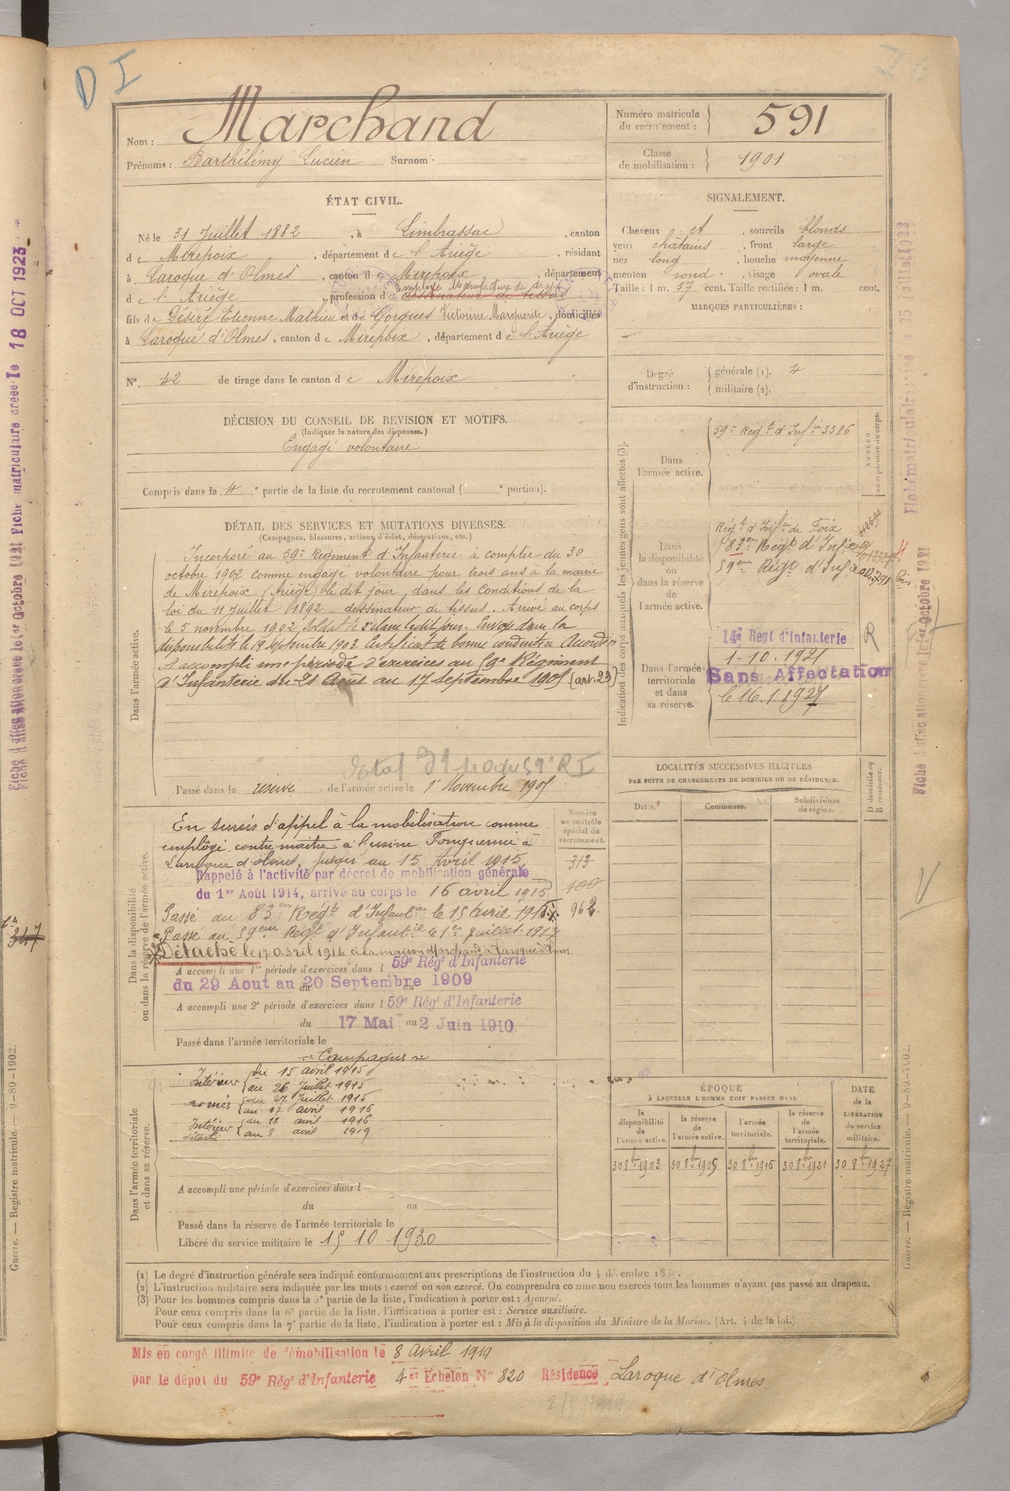 D I
Nom : Marchand
Prénoms : Barthélémy Lucien Surnom :
Numéro matricule du recrutement : 591
Classe de mobilisation : 1901
ÉTAT CIVIL.
Né le 31 Juillet 1882, à Limbrassac, canton
de Mirepoix, département de l'Ariège, résidant
à Laroque d'Olmes, canton de Mirepoix, département
de l'Ariège, profession de Employé
dessinateur de tissus
fils de Désiré Etienne Mathieu et de Gorgues Victorine Marguerite, domiciliés
à Laroque d'Olmes, canton de Mirepoix, département de l'Ariège
N° 42 de tirage dans le canton de Mirepoix
SIGNALEMENT.
Cheveux et, sourcils blonds
yeux chatains, front large
nez long, bouche moyenne
menton rond, visage ovale
Taille : 1 m. 57 cent. Taille rectifiée : 1 m. cent.
MARQUES PARTICULIÈRES :
Degré d'instruction : générale (1). 4
militaire (2).
DÉCISION DU CONSEIL DE REVISION ET MOTIFS.
(Indiquer la nature des dispenses.)
Engagé volontaire
Compris dans la 4e partie de la liste du recrutement cantonal ( e portion).
DÉTAIL DES SERVICES ET MUTATIONS DIVERSES.
(Campagnes, blessures, actions d'éclat, décorations, etc.)
Dans l'armée active.
Incorporé au 59e Régiment d'Infanterie à compter du 30
octobre 1902 comme engagé volontaire pour trois ans à la mairie
de Mirepoix (Ariège) le dit jour, dans les conditions de la
loi du 11 Juillet 1892 - dessinateur de tissus. Arrivé au corps
le 5 novembre 1902, soldat de 2e classe ledit jour. Envoyé dans la
disponibilité le 19 septembre 1903. Certificat de bonne conduite Accordé
A accompli une période d'exercices au 59e Régiment
d'Infanterie du 21 Août au 17 septembre 1905 (art. 23)
Passé dans la réserve de l'armée active le 1er Novembre 1905
Indication des corps auxquels les jeunes gens sont affectés (3).
Dans l'armée active.
59e Régt d'Infie 3386
Dans la disponibilité ou dans la réserve de l'armée active.
Régt d'Infie de Foix
83e Régt d'Infie
59eme Régt d'Infie
Dans l'armée territoriale et dans sa réserve.
14e Regt d'Infanterie
1-10.1921
Sans Affectation
le 16.1.1927
R
Dans la disponibilité ou dans la réserve de l'armée active.
En sursis d'appel à la mobilisation comme
employé contremaître à l'usine Fonquernie à
Laroque d'olmes, jusqu'au 15 Avril 1915
Rappelé à l'activité par décret de mobilisation générale
du 1er Août 1914, arrivé au corps le 16 avril 1915
Passé au 83eme Régt d'Infanterie le 15 avril 1915
Passé au 59eme Régt d'Infanterie le 1er Juillet 1917
Détaché le 17 avril 1916 à la maison Marchand à Laroque d'Olmes
A accompli une 1re période d'exercices dans l 59e Régt d'Infanterie
du 29 Aout au 20 Septembre 1909
A accompli une 2e période d'exercices dans l 59e Régt d'Infanterie
du 17 Mai au 2 Juin 1910
Passé dans l'armée territoriale le
Numéro au contrôle spécial du recrutement.
313
962
LOCALITÉS SUCCESSIVES HABITÉES
PAR SUITE DE CHANGEMENTS DE DOMICILE OU DE RÉSIDENCE.
Dates. Communes. Subdivisions de région. D domicile ou R résidence.
Dans l'armée territoriale et dans sa réserve.
Campagnes
Intérieur du 15 avril 1915
au 26 Juillet 1915
armées du 27 Juillet 1915
au 17 avril 1916
Intérieur du 18 avril 1916
détaché au 8 avril 1919
A accompli une période d'exercices dans l
du au
Passé dans la réserve de l'armée territoriale le
Libéré du service militaire le 15 10 1930
ÉPOQUE À LAQUELLE L'HOMME DOIT PASSER DANS
la disponibilité de l'armée active. la réserve de l'armée active. l'armée territoriale. la réserve de l'armée territoriale. DATE de la LIBÉRATION du service militaire.
30 8bre 1903 30 8bre 1905 30 8bre 1915 30 8bre 1921 30 8bre 1927
(1) Le degré d'instruction générale sera indiqué conformément aux prescriptions de l'instruction du 4 décembre
(2) L'instruction militaire sera indiquée par les mots : exercé ou non exercé. On comprendra comme non exercés tous les hommes n'ayant pas passé au drapeau.
(3) Pour les hommes compris dans la 5e partie de la liste, l'indication à porter est : Ajourné.
Pour ceux compris dans la 6e partie de la liste, l'indication à porter est : Service auxiliaire.
Pour ceux compris dans la 7e partie de la liste, l'indication à porter est : Mis à la disposition du Ministre de la Marine. (Art. 4 de la loi.)
Mis en congé illimité de démobilisation le 8 Avril 1919
par le dépôt du 59e Régt d'Infanterie 4er Echelon N° 820 Résidence Laroque d'Olmes
Guerre. — Registre matricule. — 9-89-1902.
Guerre. — Registre matricule. — 9-89-1902.
Fiche matriculaire créée le 18 OCT 1923
Fiche d'affectation
1er Octobre 1921
347